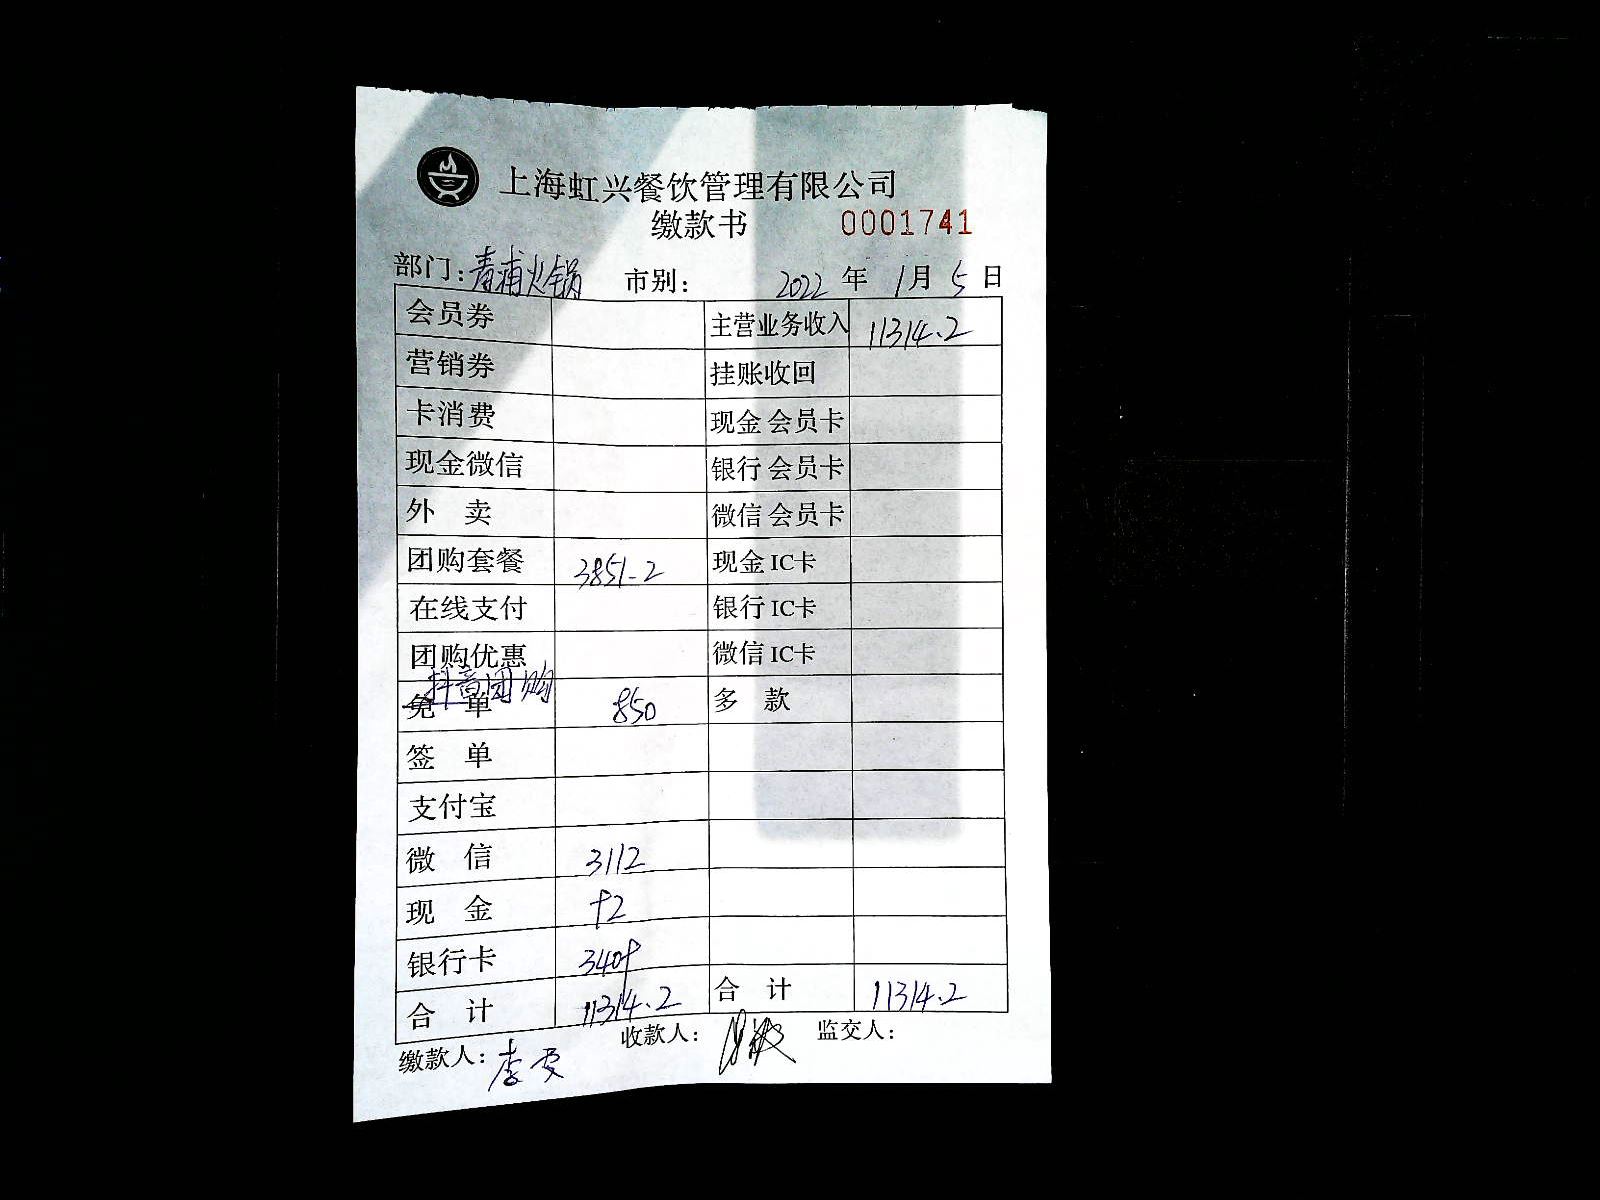 上海虹兴餐饮管理有限公司
缴款书 0001741
部门：青浦火锅 市别： 2022 年 1 月 5 日
会员券 主营业务收入 11314.2
营销券 挂账收回
卡消费 现金 会员卡
现金微信 银行 会员卡
外 卖 微信 会员卡
团购套餐 3851.2 现金 IC卡
在线支付 银行 IC卡
团购优惠 微信 IC卡
抖音团购
免 单 850 多 款
签 单
支付宝
微 信 3112
现 金 92
银行卡 3409
合 计 11314.2 合 计 11314.2
缴款人：李 收款人： 监交人：